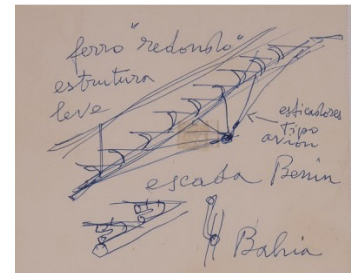 ferro "redondo"
estrutura
leve
esticadores
tipo
avion
escada Benin
Bahia